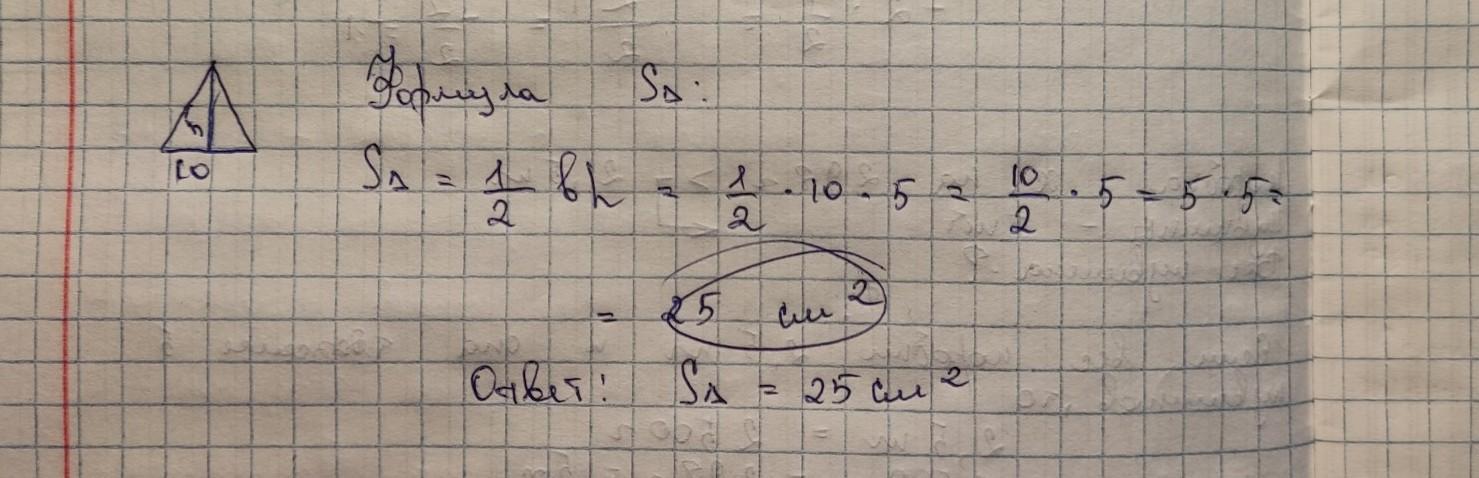 Формула S△:
5
10
S△ = 1/2 bh = 1/2 · 10 · 5 = 10/2 · 5 = 5 · 5 =
= 25 см²
Ответ: S△ = 25 см²